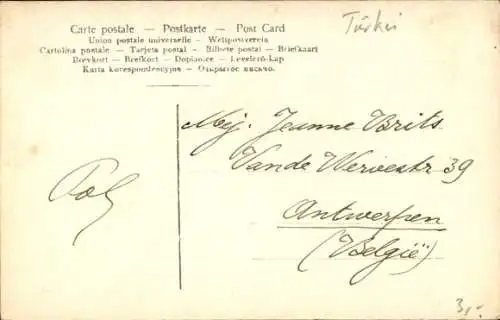 Türkei
Carte postale — Postkarte — Post Card
Union postale universelle — Weltpostverein
Cartolina postale — Tarjeta postal — Bilhete postal — Briefkaart
Brevkort — Brefkort — Dopisnice — Levelező-lap
Karta korespondencyjna — Открытое письмо.
Mej. Jeanne Brits
Vande Wervestr 39
Antwerpen
(België)
3,-